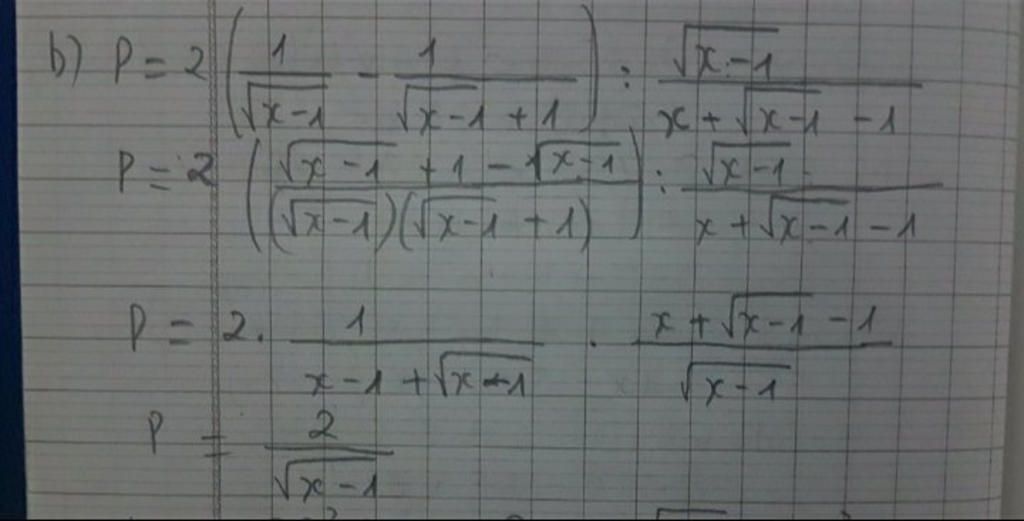 b) P = 2 ( 1/√(x-1) - 1/(√(x-1) + 1) ) : √(x-1)/(x + √(x-1) - 1)
P = 2 ( (√(x-1) + 1 - √(x-1))/((√(x-1))(√(x-1) + 1)) ) : √(x-1)/(x + √(x-1) - 1)
P = 2 . 1/(x - 1 + √(x-1)) . (x + √(x-1) - 1)/√(x-1)
P = 2/√(x-1)